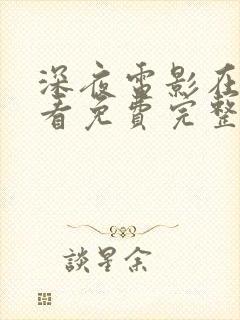 深夜雷影在
看免费完整
談星余